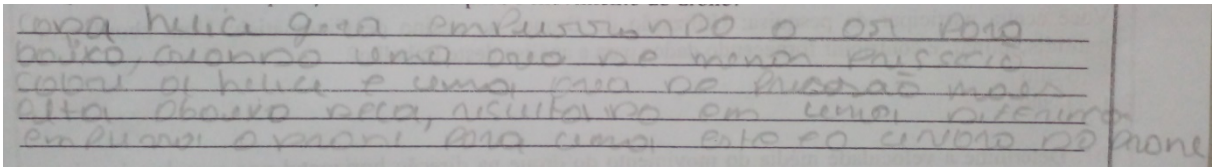 cada helice gira empurrando o ar para
baixo, criando uma area de menor pressão
sobre a helice e uma area de pressão mais
alta abaixo dela, resultando em uma diferença
empurra o drone para cima, este é o do Drone